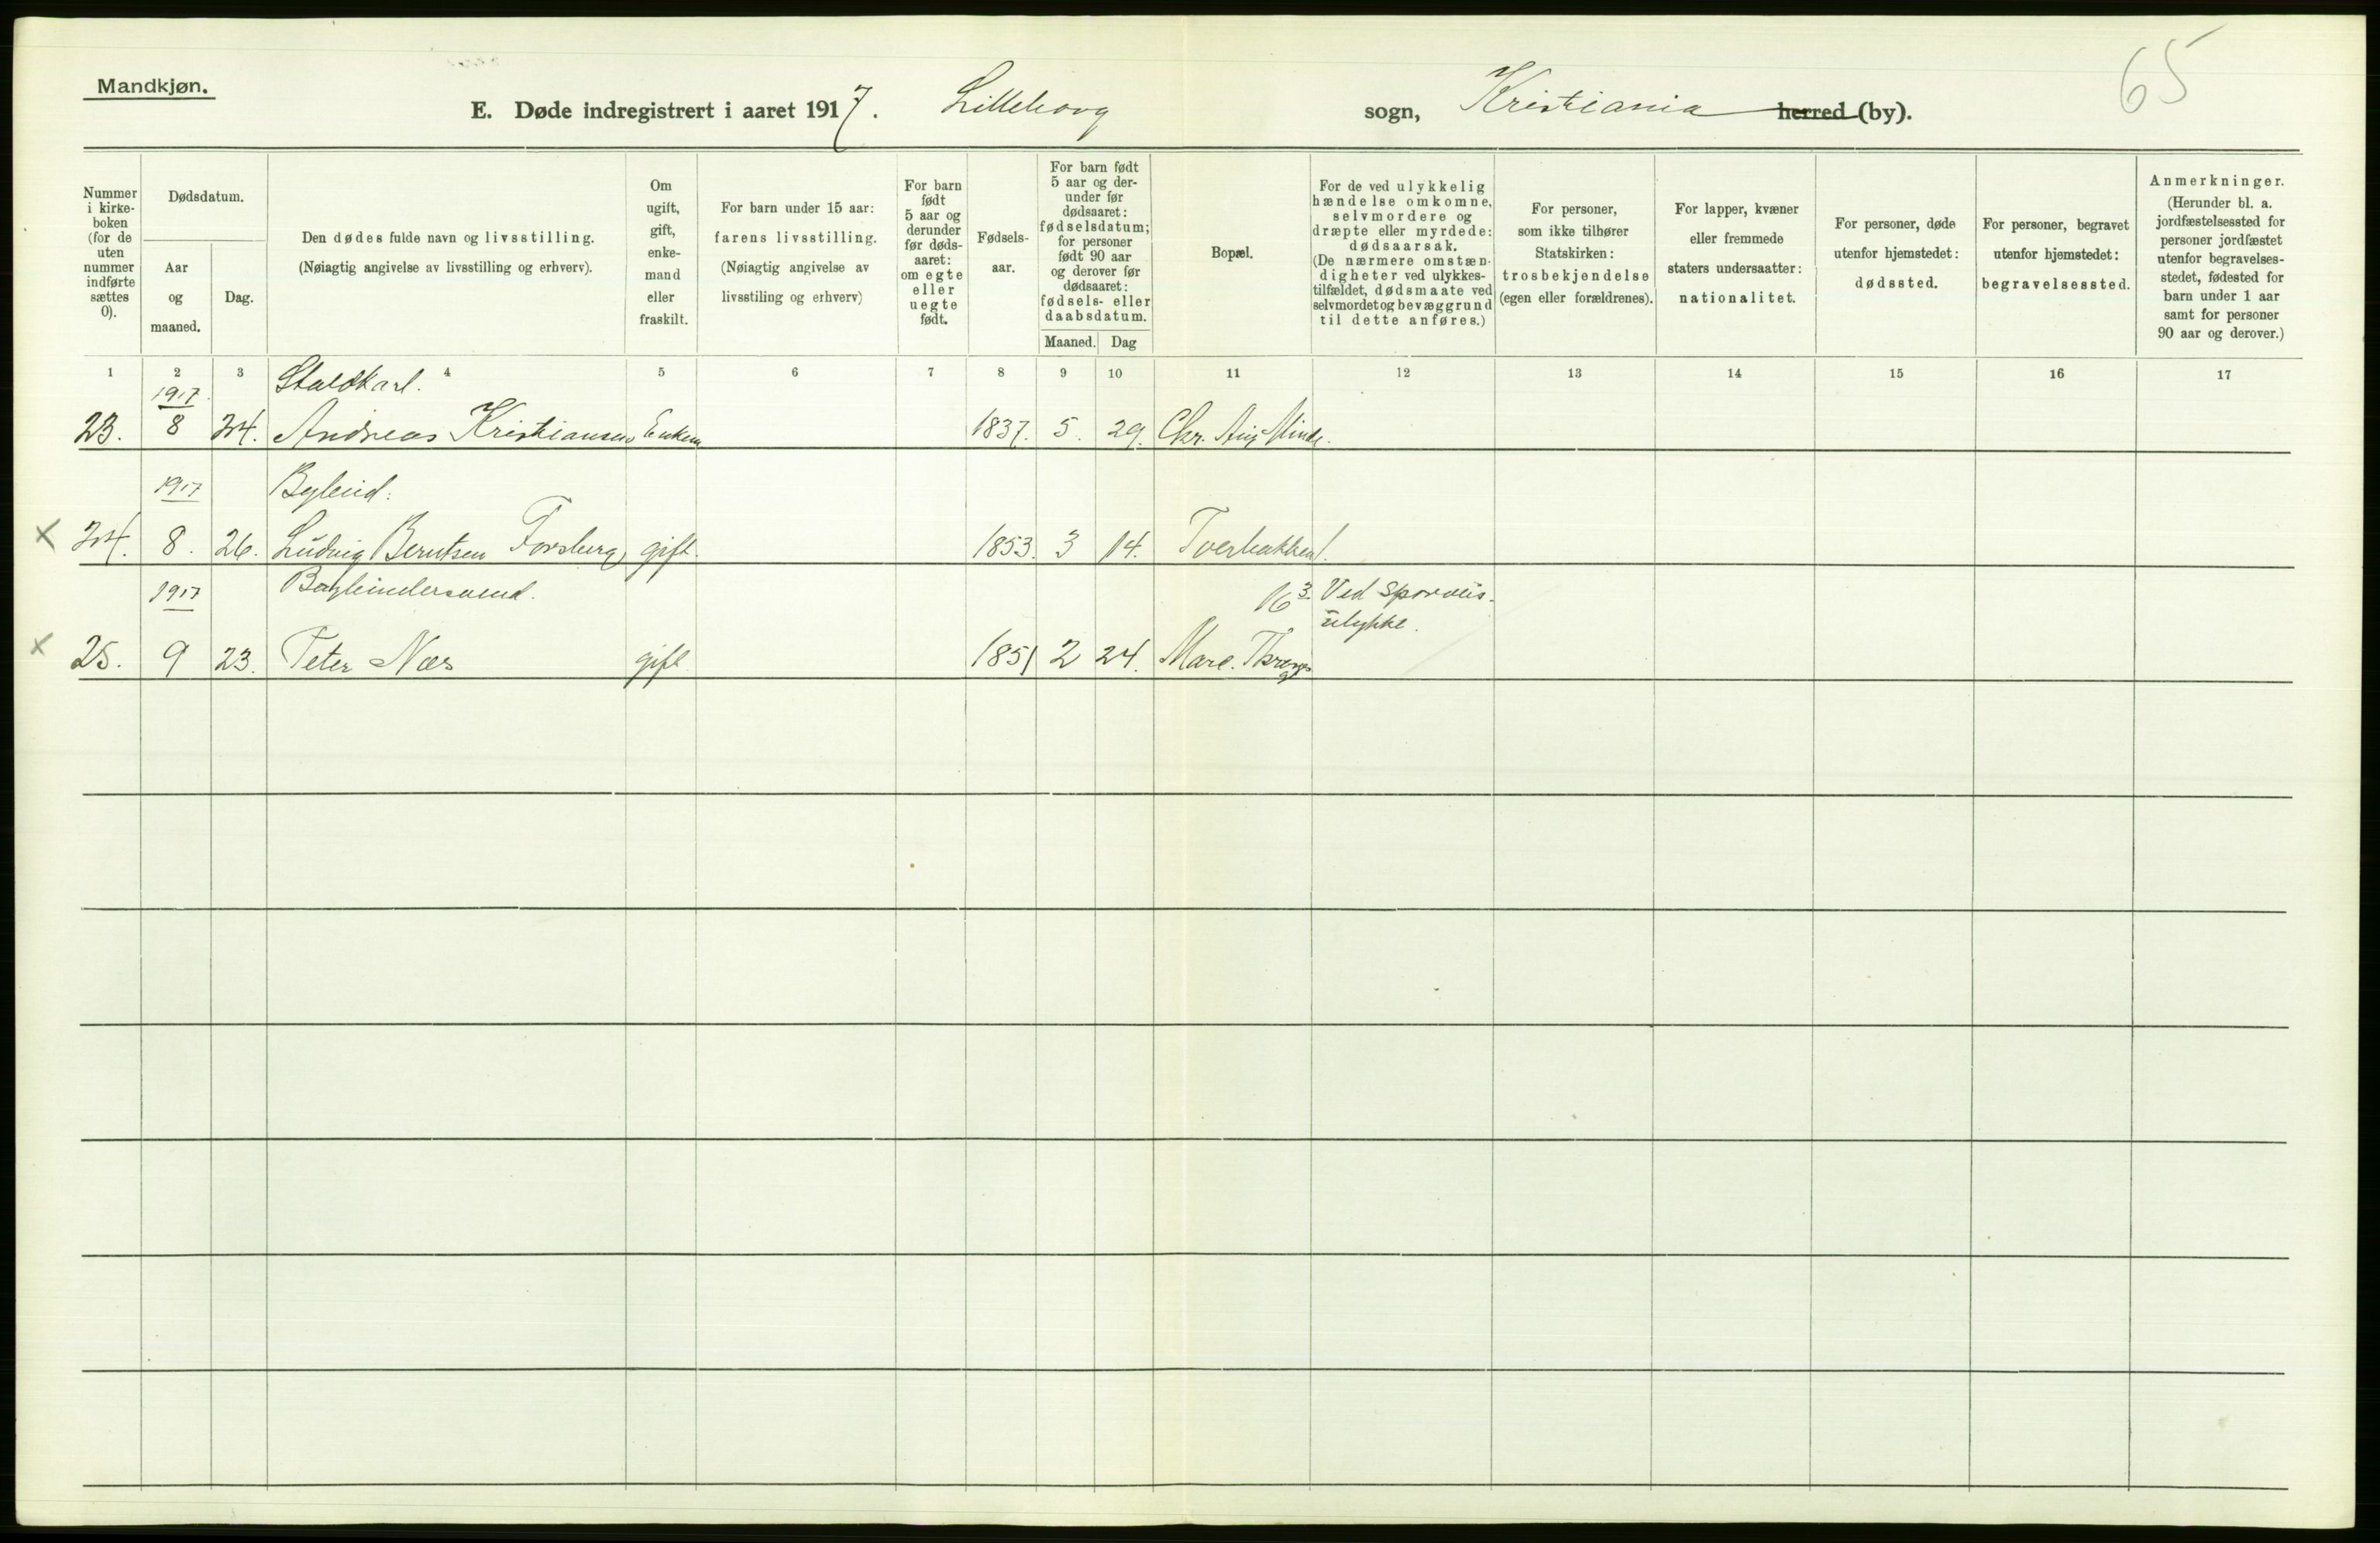 Mandkjøn.
65
E. Døde indregistrert i aaret 1917. Lilleborg sogn, Kristiania herred (by).
Nummer i kirke-boken (for de uten nummer indførte sættes 0).
Dødsdatum.
Aar og maaned.
Dag.
Den dødes fulde navn og livsstilling.
(Nøiagtig angivelse av livsstilling og erhverv).
Om ugift, gift, enke-mand eller fraskilt.
For barn under 15 aar:
farens livsstilling.
(Nøiagtig angivelse av
livsstiling og erhverv)
For barn født 5 aar og derunder før døds-aaret: om egte eller uegte født.
Fødsels-aar.
For barn født 5 aar og der-under før dødsaaret: fødselsdatum; for personer født 90 aar og derover før dødsaaret: fødsels- eller daabsdatum.
Maaned. Dag
Bopæl.
For de ved ulykkelig hændelse omkomne, selvmordere og dræpte eller myrdede: dødsaarsak.
(De nærmere omstæn-digheter ved ulykkes-tilfældet, dødsmaate ved selvmordet og bevæggrund til dette anføres.)
For personer, som ikke tilhører Statskirken: trosbekjendelse (egen eller forældrenes).
For lapper, kvæner eller fremmede staters undersaatter: nationalitet.
For personer, døde utenfor hjemstedet: dødssted.
For personer, begravet utenfor hjemstedet: begravelsessted.
Anmerkninger.
(Herunder bl. a. jordfæstelsessted for personer jordfæstet utenfor begravelses-stedet, fødested for barn under 1 aar samt for personer 90 aar og derover.)
1 2 3 4 5 6 7 8 9 10 11 12 13 14 15 16 17
1917. Staldkarl.
23. 8 24. Andreas Kristiansen Enkem 1837. 5. 29. Chr. Aug Minde.
1917 Byleid.
x 24. 8. 26. Ludvig Berntsen Forsberg gift. 1853. 3 14. Tverbakken 1.
1917 16 3. Ved Sporveis-
ulykke.
x 25. 9 23. Peter Næs gift 1851 2 24. Marc. Thranes